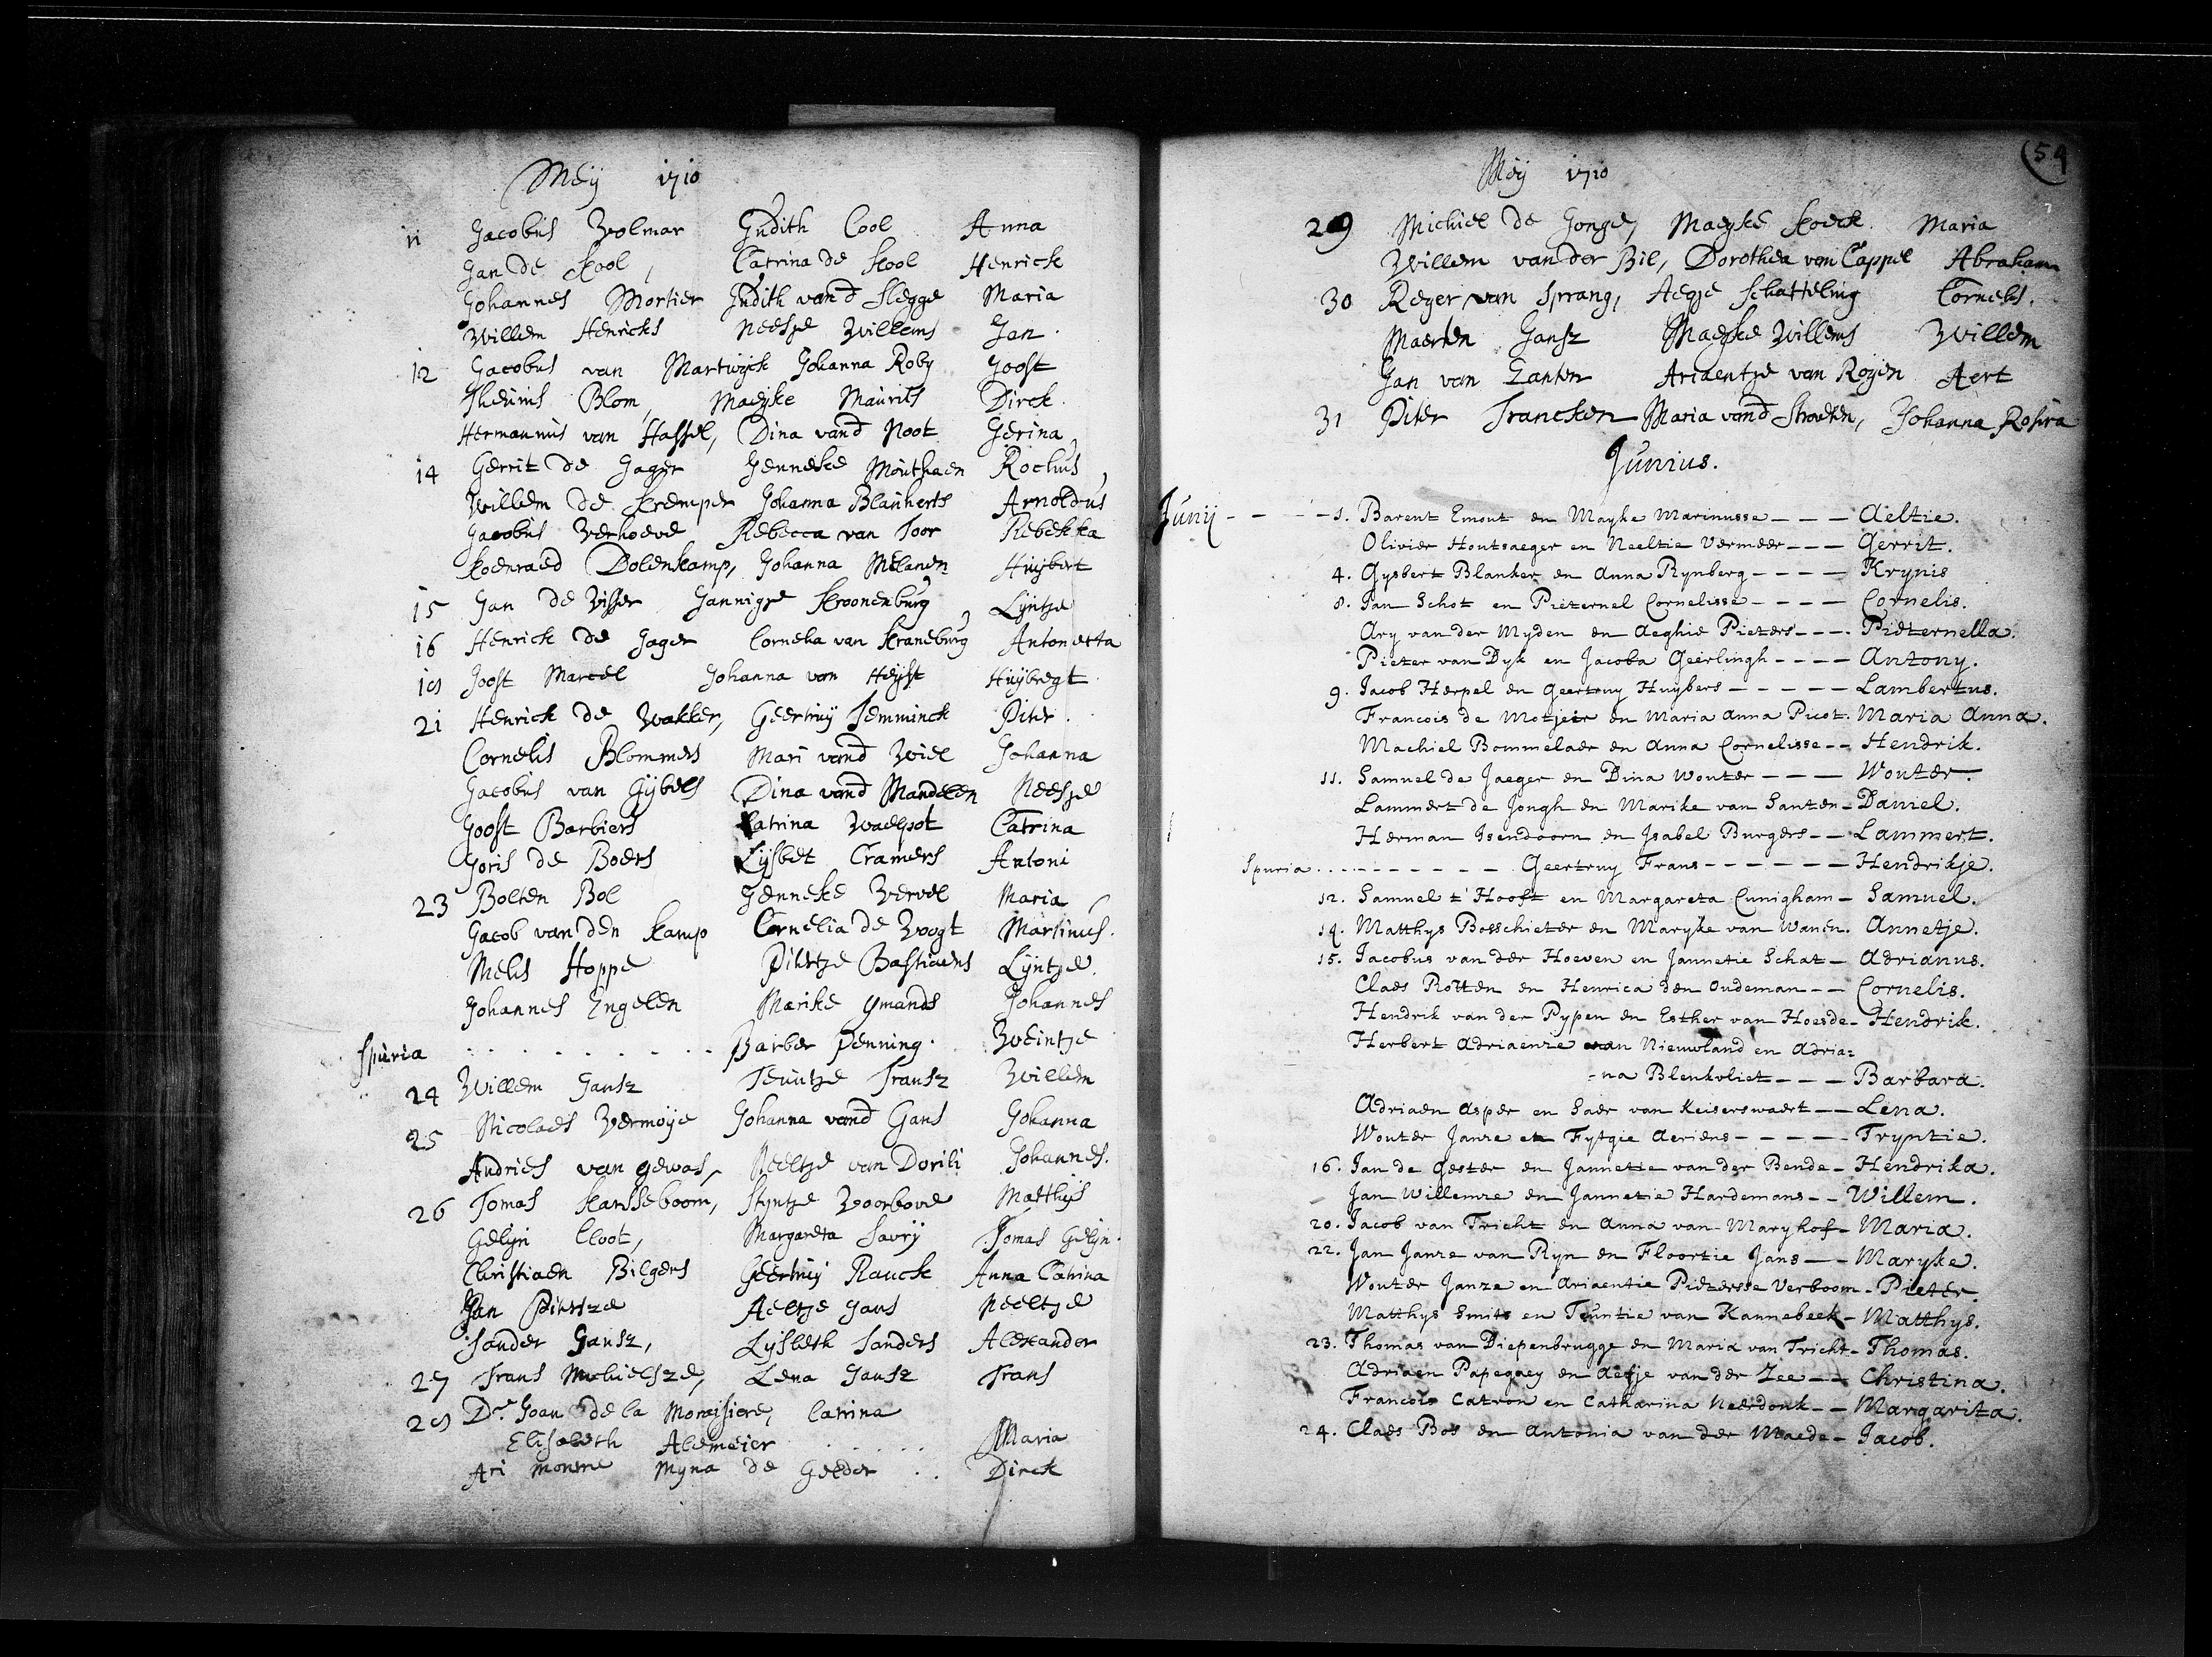 Meij 1710
11 Jacobus Volmar Judith Cool Anna
Jan de Kool, Catrina de Kool Henrick
Johannes Mortier Judith vand Slegge Maria
Willem Henricks Neesje Willems Jan.
12 Jacobus van Martwijck Johanna Roby Joost
Theunis Blom, Maeyke Maurits Dirck.
Hermannus van Hassel, Dina vand Noot Gerina
14 Gerrit de Jager Jenneke Mouthaen Rochus
Willem de Kremper Johanna Blankerts Arnoldus
Jacobus Verhoeve Rebecca van Toor Rebekka
Koenraed Dolenkamp, Johanna Melanen Huijbert
15 Jan de Visser Jannigje Kroonenburg Lijntje
16 Henrick de Jager Cornelia van Kraneburg Antonetta
18 Joost Marcel Johanna van Heijst Huijbregt
21 Henrick de Wakker, Geertruij Temminck Piter.
Cornelis Blommers Mari vand Wiel Johanna
Jacobus van Gijbels Dina vand Mandelen Neesje
Joost Barbiers Catrina Waelpot Catrina
Joris de Boers Lijsbet Cramers Antoni
23 Bolten Bol Jenneke Vervel Maria
Jacob van den Kamp Cornelia de Voogt Martinus.
Melis Hoppe Pitertje Bastiaens Lijntje.
Johannes Engelen Marike Ymands Johannes
Spuria . . . . . . . . . Barber Penning. Weintje
24 Willem Jansz Teuntje Fransz Willem
25 Nicolaes Vermoije Johanna vand Gans Johanna
Andries van Gewas, Neeltje van Dorsli Johannes.
26 Tomas Karsseboom, Stijntje Voorbove Matthijs
Gelijn Cloot, Margareta Savrij Tomas Gelijn.
Christiaen Bilgers Geertruij Rauck Anna Catrina
Jan Pitersze Aeltje Jans Neeltje
Sander Jansz, Lijsbeth Sanders Alexander
27 Frans Michielsze, Lena Jansz Frans
28 Ds. Joan de la Moraisiere, Catrina
Elisabeth Alemeier . . . . . Maria
Ari Monere Myna de Gelder . . Dirck
54
Meij 1710
29 Michiel de Jonge, Maeyke Koeck. Maria
Willem van der Bil, Dorothea van Cappel Abraham
30 Reyer van Sprang, Aegje Schatteling Cornelis.
Maerten Jansz Maeyke Willems Willem
Jan van Zanten Ariaentje van Royen Aert
31 Piter Francken Maria vand Straeten, Johanna Rosira
Junius.
Junij - - - - 1. Barent Emout en Mayke Marinusse - - - Aeltie.
Olivier Houtsaeger en Neeltie Vermeer - - - Gerrit.
4. Gysbert Blanker en Anna Rynberg - - - - Krynis
8. Jan Schot en Pieternel Cornelisse - - - - Cornelis.
Ary van der Myden en Aeghie Pieters - - - - Pieternella.
Pieter van Dyk en Jacoba Geerlingh - - - - Antony.
9. Jacob Herpel en Geertruy Huybers - - - - - Lambertus.
Francois de Motjeir en Maria Anna Picot. Maria Anna.
Machiel Bommelaer en Anna Cornelisse - - Hendrik.
11. Samuel de Jaeger en Dina Wouter - - - - Wouter.
Lammert de Jongh en Marike van Santen - Daniel.
Herman Isendoorn en Isabel Burgers - - Lammert.
Spuria . . . . - - - - - - - Geertruy Frans - - - - - - Hendrikje.
12. Samuel t'Hooft en Margareta Cunigham - Samuel.
14. Matthys Bosschieter en Maryke van Wanen. Annetje.
15. Jacobus van der Hoeven en Jannetie Schat - Adrianus.
Claes Rotten en Henrica den Oudeman - - Cornelis.
Hendrik van der Pypen en Esther van Hoesde - Hendrik.
Herbert Adriaenze van Nieuwland en Adria=
-na Blenkvliet - - - Barbara.
Adriaen Asper en Saer van Keiserswaert - - Lena.
Wouter Janze en Fytgie Aeriens - - - - - Tryntie.
16. Jan de Gester en Jannetie van der Bende - Hendrika.
Jan Willemze en Jannetie Hardemans - - Willem.
20. Jacob van Tricht en Anna van Maryhof - Maria.
22. Jan Janze van Ryn en Floortie Jans - - Maryke.
Wouter Janze en Ariaentie Pieterse Verboom - Pieter.
Matthys Smits en Teuntie van Kannebeek - Matthys.
23. Thomas van Diepenbrugge en Maria van Tricht - Thomas.
Adriaen Papegaey en Aefje van der Zee - - Christina.
Francois Catron en Catharina Neerdonk - - Margarita.
24. Claes Bos en Antonia van der Maede - Jacob.